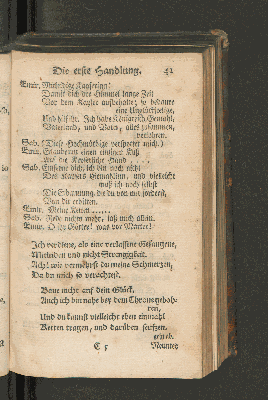 Die erste Handlung. 41
Emir. Mächtige Kayserinn!
Damit dich der Himmel lange Zeit
Vor dem Kayser aufbehalte; so betaure
eine Unglückselige,
Und hilf ihr. Ich habe Königreich, Gemahl,
Vaterland, und Vater, alles zusammen,
verlohren.
Sab. (Diese Hochmüthige verspottet mich.)
Emir. einen Kuß
die Kayserliche Hand ....
Sab. ich bin noch nicht
Des Kaysers Gemahlinn, und vielleicht
muß ich noch selbst
Die von mir forderst,
Von dir erbitten.
Emir. Meine Ketten .....
Sab. Rede nichts mehr, laß mich allein.
Emir. O ihr Götter! was vor Marter!
Ich verdiene, als eine verlassne Gefangene,
Mitleiden und nicht Strengigkeit.
Ach! wie vermehrst du meine Schmerzen,
Da du mich so verachtest.
Baue nicht auf dein Glück.
Auch ich bin nahe bey dem Throne gebohren,
Und du kannst vielleicht eben einmahl
Ketten tragen, und darüben seufzen.
geht ab.
C 5